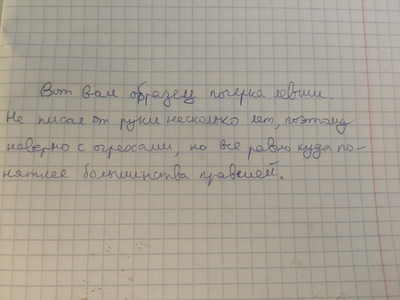 Вот вам образец почерка левши.
Не писал от руки несколько лет, поэтому
наверно с огрехами, но все равно куда по-
нятнее большинства правшей.